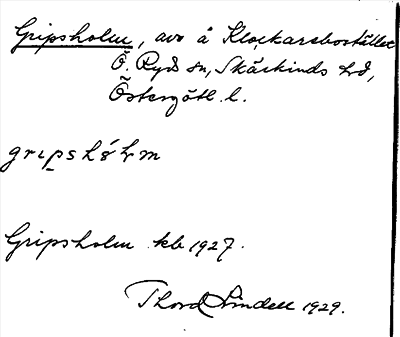 Gripsholm, avs å Klockarebostället
Ö. Ryd sn, Skärkinds hd,
Östergötl. l.
gripshólm
Gripsholm kb 1927.
Thord Lindell 1929.